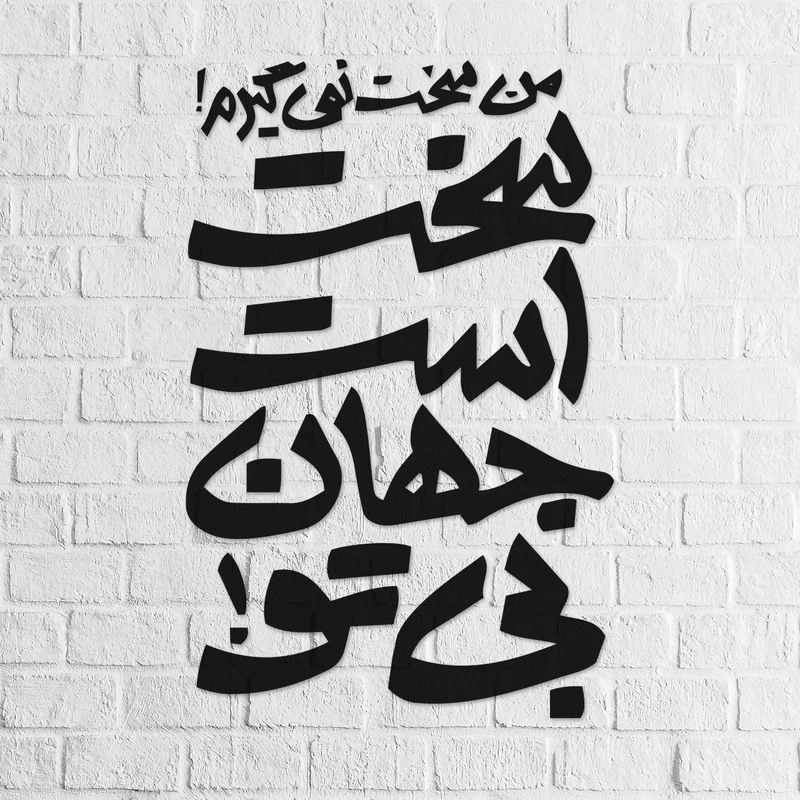 من سخت نمی گیرم!
سخت
است
جهان
بی تو!